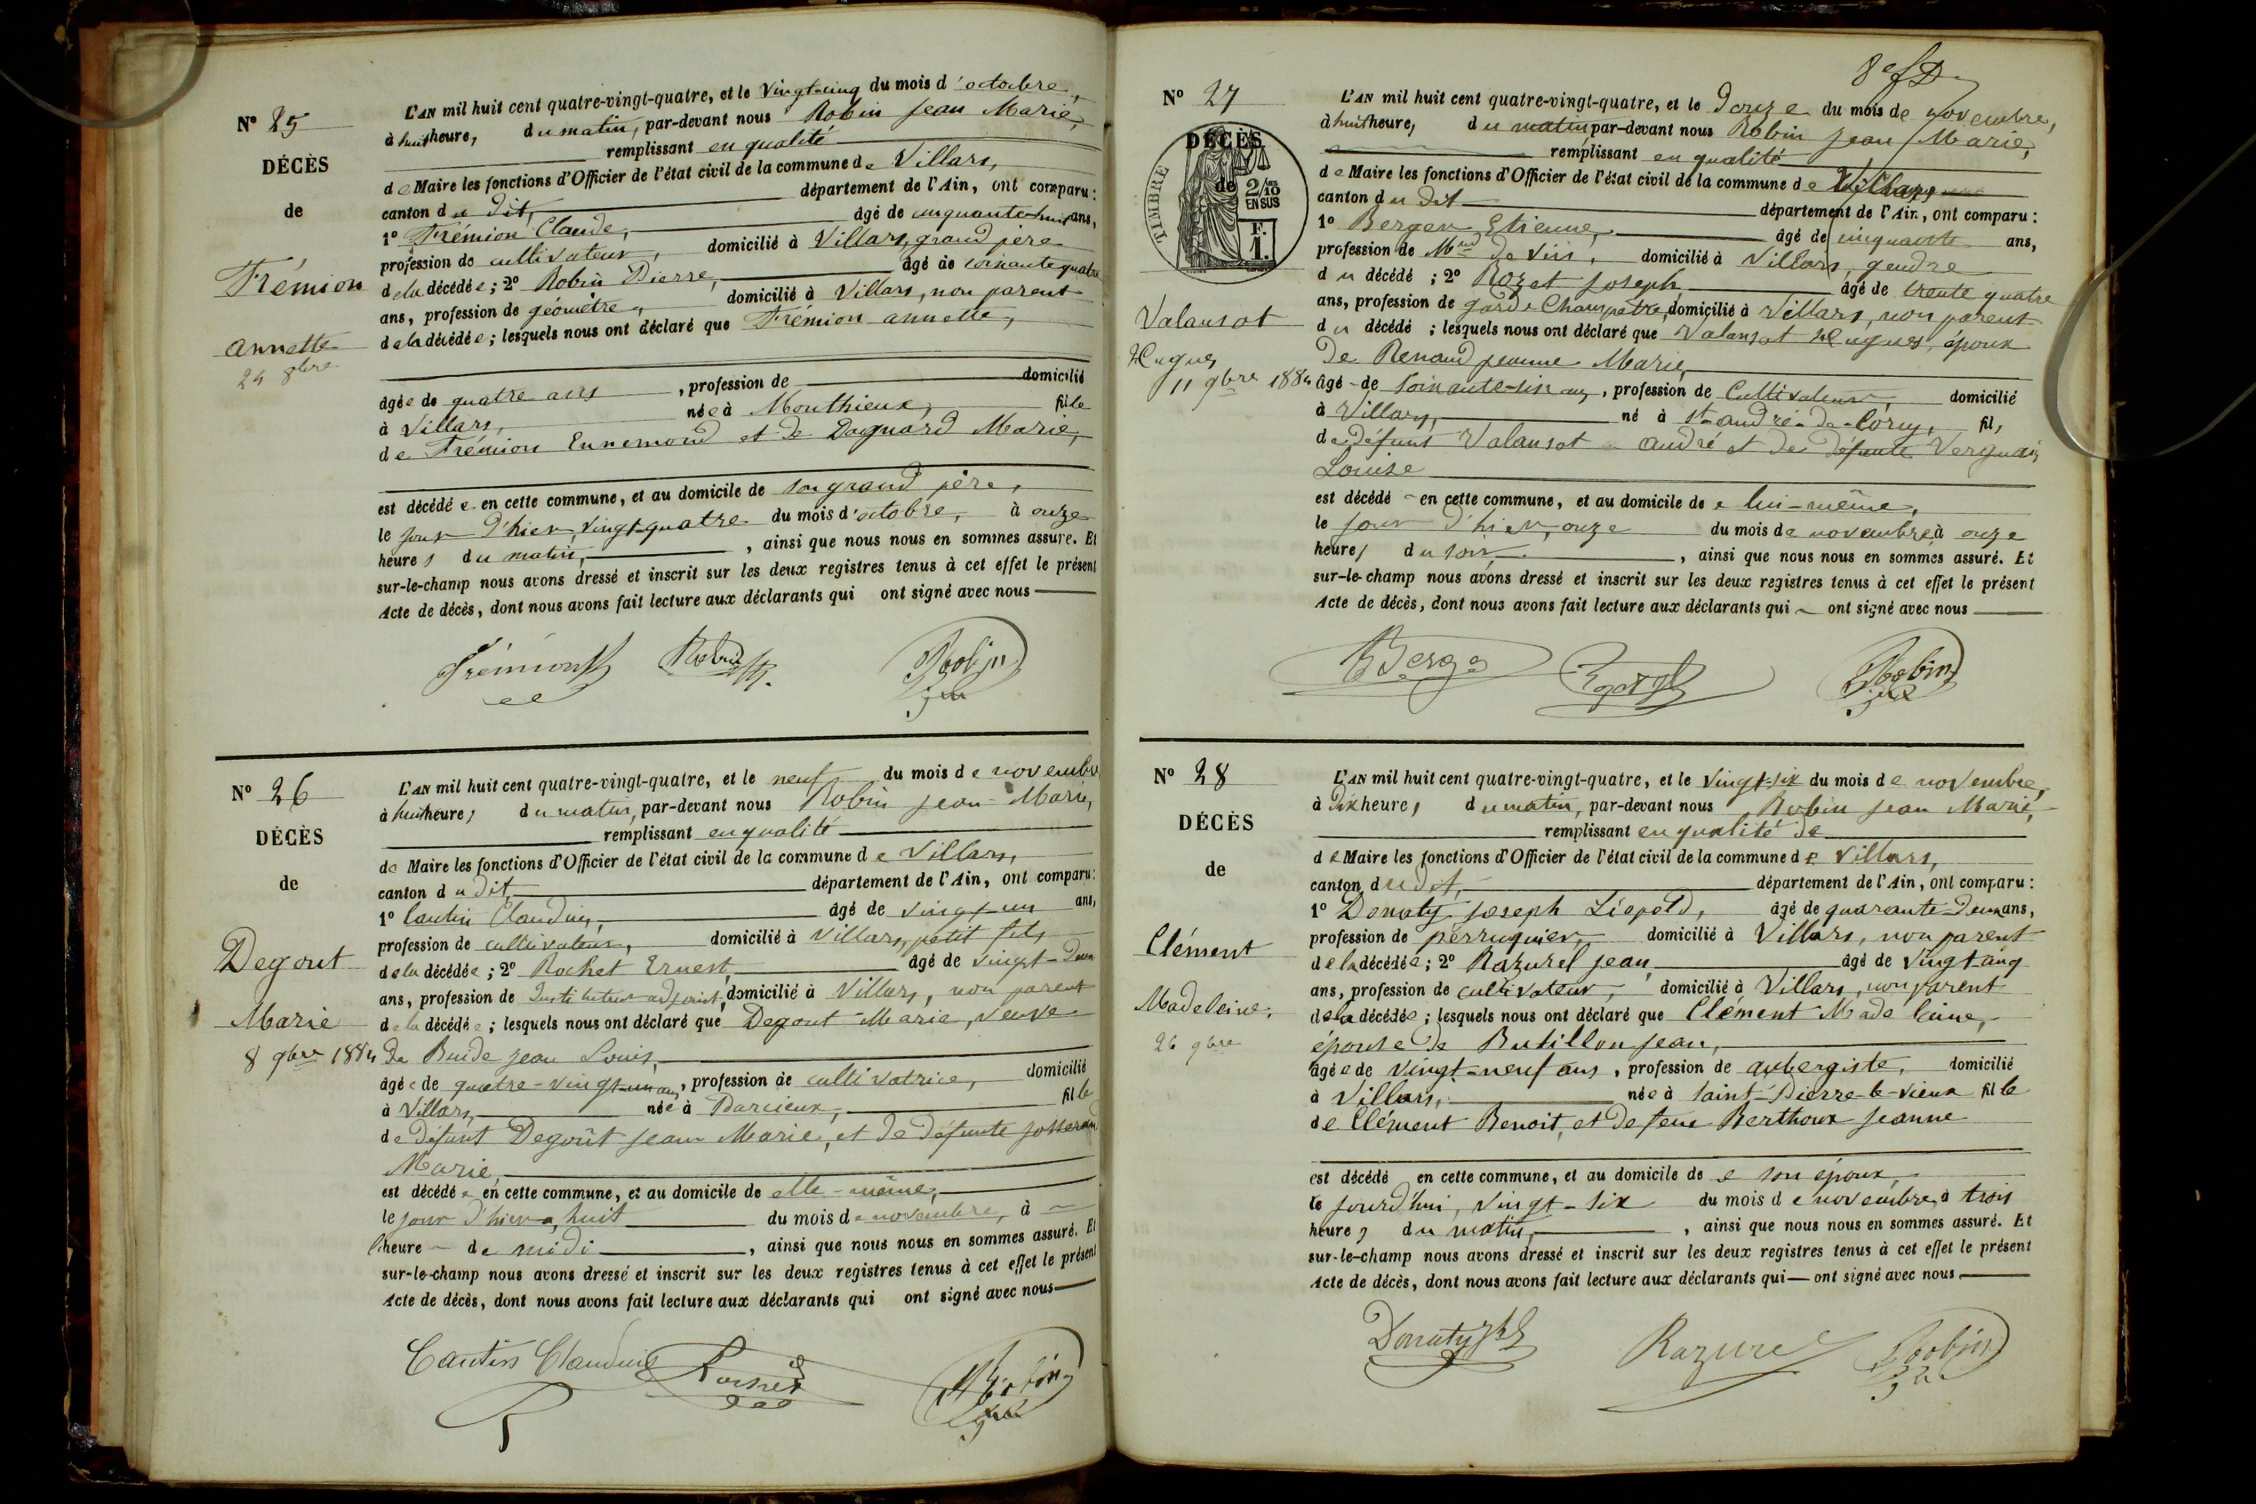 N° 25
DÉCÈS
de
Frémion
annette
24 8bre
L'AN mil huit cent quatre-vingt-quatre, et le vingt-cinq du mois d'octobre,
à huit heures, du matin, par-devant nous Robin Jean Marie,
remplissant en qualité
de Maire les fonctions d'Officier de l'état civil de la commune de Villars,
canton du dit, département de l'Ain, ont comparu :
1° Frémion Claude, âgé de cinquante-huit ans,
profession de cultivateur, domicilié à Villars, grand père
de la décédée ; 2° Robin Pierre, âgé de soixante quatre
ans, profession de géomètre, domicilié à Villars, non parent
de la décédée ; lesquels nous ont déclaré que Frémion annette,
âgée de quatre ans, profession de domicilié
à Villars, née à Monthieux, fille
de Frémion Ennemond et de Daguard Marie,
est décédée en cette commune, et au domicile de son grand père,
le jour d'hier, vingt-quatre du mois d'octobre, à onze
heures du matin, ainsi que nous nous en sommes assuré. Et
sur-le-champ nous avons dressé et inscrit sur les deux registres tenus à cet effet le présent
Acte de décès, dont nous avons fait lecture aux déclarants qui ont signé avec nous
Frémion Robin Robin
N° 26
DÉCÈS
de
Degout
Marie
8 9bre 1884
L'AN mil huit cent quatre-vingt-quatre, et le neuf du mois de novembre
à huit heures, du matin, par-devant nous Robin Jean-Marie,
remplissant en qualité
de Maire les fonctions d'Officier de l'état civil de la commune de Villars,
canton du dit, département de l'Ain, ont comparu :
1° Cantin Claudius, âgé de vingt-un ans,
profession de cultivateur, domicilié à Villars, petit fils
de la décédée ; 2° Rochet Ernest, âgé de vingt-deux
ans, profession de Instituteur adjoint, domicilié à Villars, non parent
de la décédée ; lesquels nous ont déclaré que Degout Marie, veuve
de Buide Jean Louis,
âgée de quatre-vingt-un ans, profession de cultivatrice, domicilié
à Villars, née à Parcieux, fille
de défunt Degoût Jean Marie, et de défunte Josserand
Marie,
est décédée en cette commune, et au domicile de elle-même,
le jour d'hier, huit du mois de novembre, à
l'heure de midi, ainsi que nous nous en sommes assuré. Et
sur-le-champ nous avons dressé et inscrit sur les deux registres tenus à cet effet le présent
Acte de décès, dont nous avons fait lecture aux déclarants qui ont signé avec nous
Cantin Claudius Rochet Robin
N° 27
TIMBRE
DÉCÈS
de
2/10 EN SUS
F. 1.
Valansot
Hugues
11 9bre 1884
L'AN mil huit cent quatre-vingt-quatre, et le Douze du mois de novembre,
à huit heures, du matin par-devant nous Robin Jean Marie,
remplissant en qualité
de Maire les fonctions d'Officier de l'état civil de la commune de Villars
canton du dit département de l'Ain, ont comparu :
1° Berger Etienne, âgé de cinquante ans,
profession de Md de vin, domicilié à Villars, gendre
du décédé ; 2° Rozet Joseph âgé de trente quatre
ans, profession de garde Champêtre, domicilié à Villars, non parent
du décédé ; lesquels nous ont déclaré que Valansot Hugues, époux
de Renaud Jeanne Marie,
âgé de soixante-six ans, profession de Cultivateur, domicilié
à Villars, né à St-andré-de-Corcy, fils
de défunt Valansot andré et de défunte
Louise
est décédé en cette commune, et au domicile de lui-même,
le jour d'hier, onze du mois de novembre, à onze
heures du soir, ainsi que nous nous en sommes assuré. Et
sur-le-champ nous avons dressé et inscrit sur les deux registres tenus à cet effet le présent
Acte de décès, dont nous avons fait lecture aux déclarants qui ont signé avec nous
Berger Robin
N° 28
DÉCÈS
de
Clément
Madeleine.
26 9bre
L'AN mil huit cent quatre-vingt-quatre, et le vingt-six du mois de novembre,
à Dix heures, du matin, par-devant nous Robin Jean Marie,
remplissant en qualité de
de Maire les fonctions d'Officier de l'état civil de la commune de Villars,
canton du dit, département de l'Ain, ont comparu :
1° Donaty Joseph Léopold, âgé de quarante-deux ans,
profession de perruquier, domicilié à Villars, non parent
de la décédée ; 2° Razurel Jean, âgé de vingt cinq
ans, profession de cultivateur, domicilié à Villars, non parent
de la décédée ; lesquels nous ont déclaré que Clément Madeleine,
épouse de Butillon Jean,
âgée de vingt-neuf ans, profession de aubergiste, domicilié
à Villars, née à Saint-Pierre-le-vieux fille
de Clément Benoit, et de feue Berthoux Jeanne
est décédé en cette commune, et au domicile de son époux,
le jourd'hui, vingt-six du mois de novembre, à trois
heures du matin, ainsi que nous nous en sommes assuré. Et
sur-le-champ nous avons dressé et inscrit sur les deux registres tenus à cet effet le présent
Acte de décès, dont nous avons fait lecture aux déclarants qui ont signé avec nous
Donaty Razurel Robin